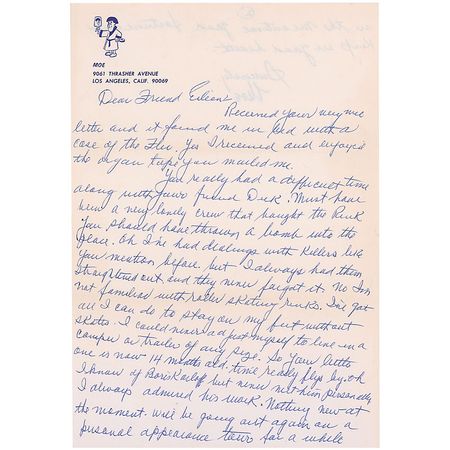 MOE
9061 THRASHER AVENUE
LOS ANGELES, CALIF. 90069
Dear Friend Eileen:
Received your very nice
letter and it found me in bed with a
case of the Flu. Yes I received and enjoyed
the organ tape you mailed me.
You really had a difficult time
along with your friend Dick. Must have
been a new lonely crew that bought the Rink
you should have thrown a bomb into the
place. Oh I've had dealings with Killers like
you mention before but I always had them
straightened out and they never forgot it. No I'm
not familiar with roller skating rinks. I've got
all I can do to stay on my feet without
skates. I could never adjust myself to live in a
camper or trailer of any size. So your little
one is now 14 months old. time really flys by. oh
I know of Boris Karloff but never met him personally
I always admired his work. Nothing new at
the moment will be going out again on a
personal appearance tour for a while